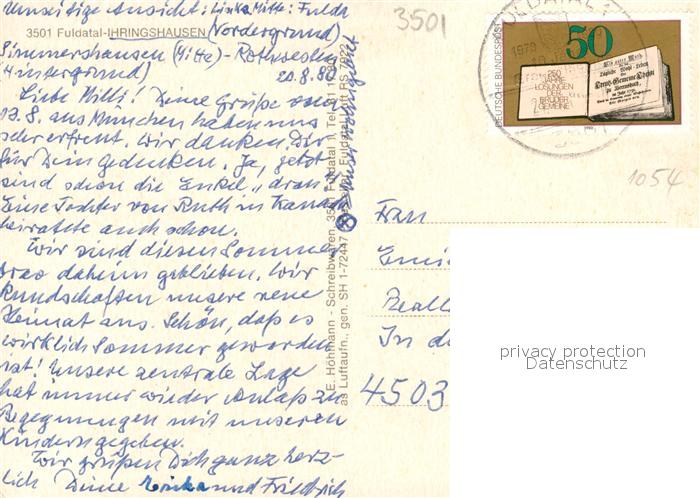 Umseitige Ansicht: Links Mitte: Fulda
3501 Fuldatal-IHRINGSHAUSEN (Vordergrund)
Simmershausen (Mitte) - Rothwesten
(Hintergrund) 20.8.80
Liebe Miltz! Deine Grüße vom
13.8. aus München haben uns
sehr erfreut. Wir danken Dir
für Dein Gedenken. Ja, jetzt
sind schon die Enkel „dran".
Eine Tochter von Ruth in Kanada
heiratete auch schon.
Wir sind diesen Sommer
brav daheim geblieben. Wir
kundschaften unsere neue
Heimat aus. Schön, daß es
wirklich Sommer geworden
ist! Unsere zentrale Lage
hat immer wieder Anlaß zu
Begegnungen mit unseren
Kindern gegeben.
Wir grüßen Dich ganz herz-
lich Deine Erika und Friedrich
E. Höhmann - Schreibwaren, 3501 Fuldatal 1, Tel.
as Luftaufn., gen. SH 1-72447
unser Wohngebiet
3501
FULDATAL 1
DEUTSCHE BUNDESPOST
50
250
JAHRE
LOSUNGEN
DER
BRÜDER
GEMEINE
1054
Frau
In de
4503
privacy protection
Datenschutz